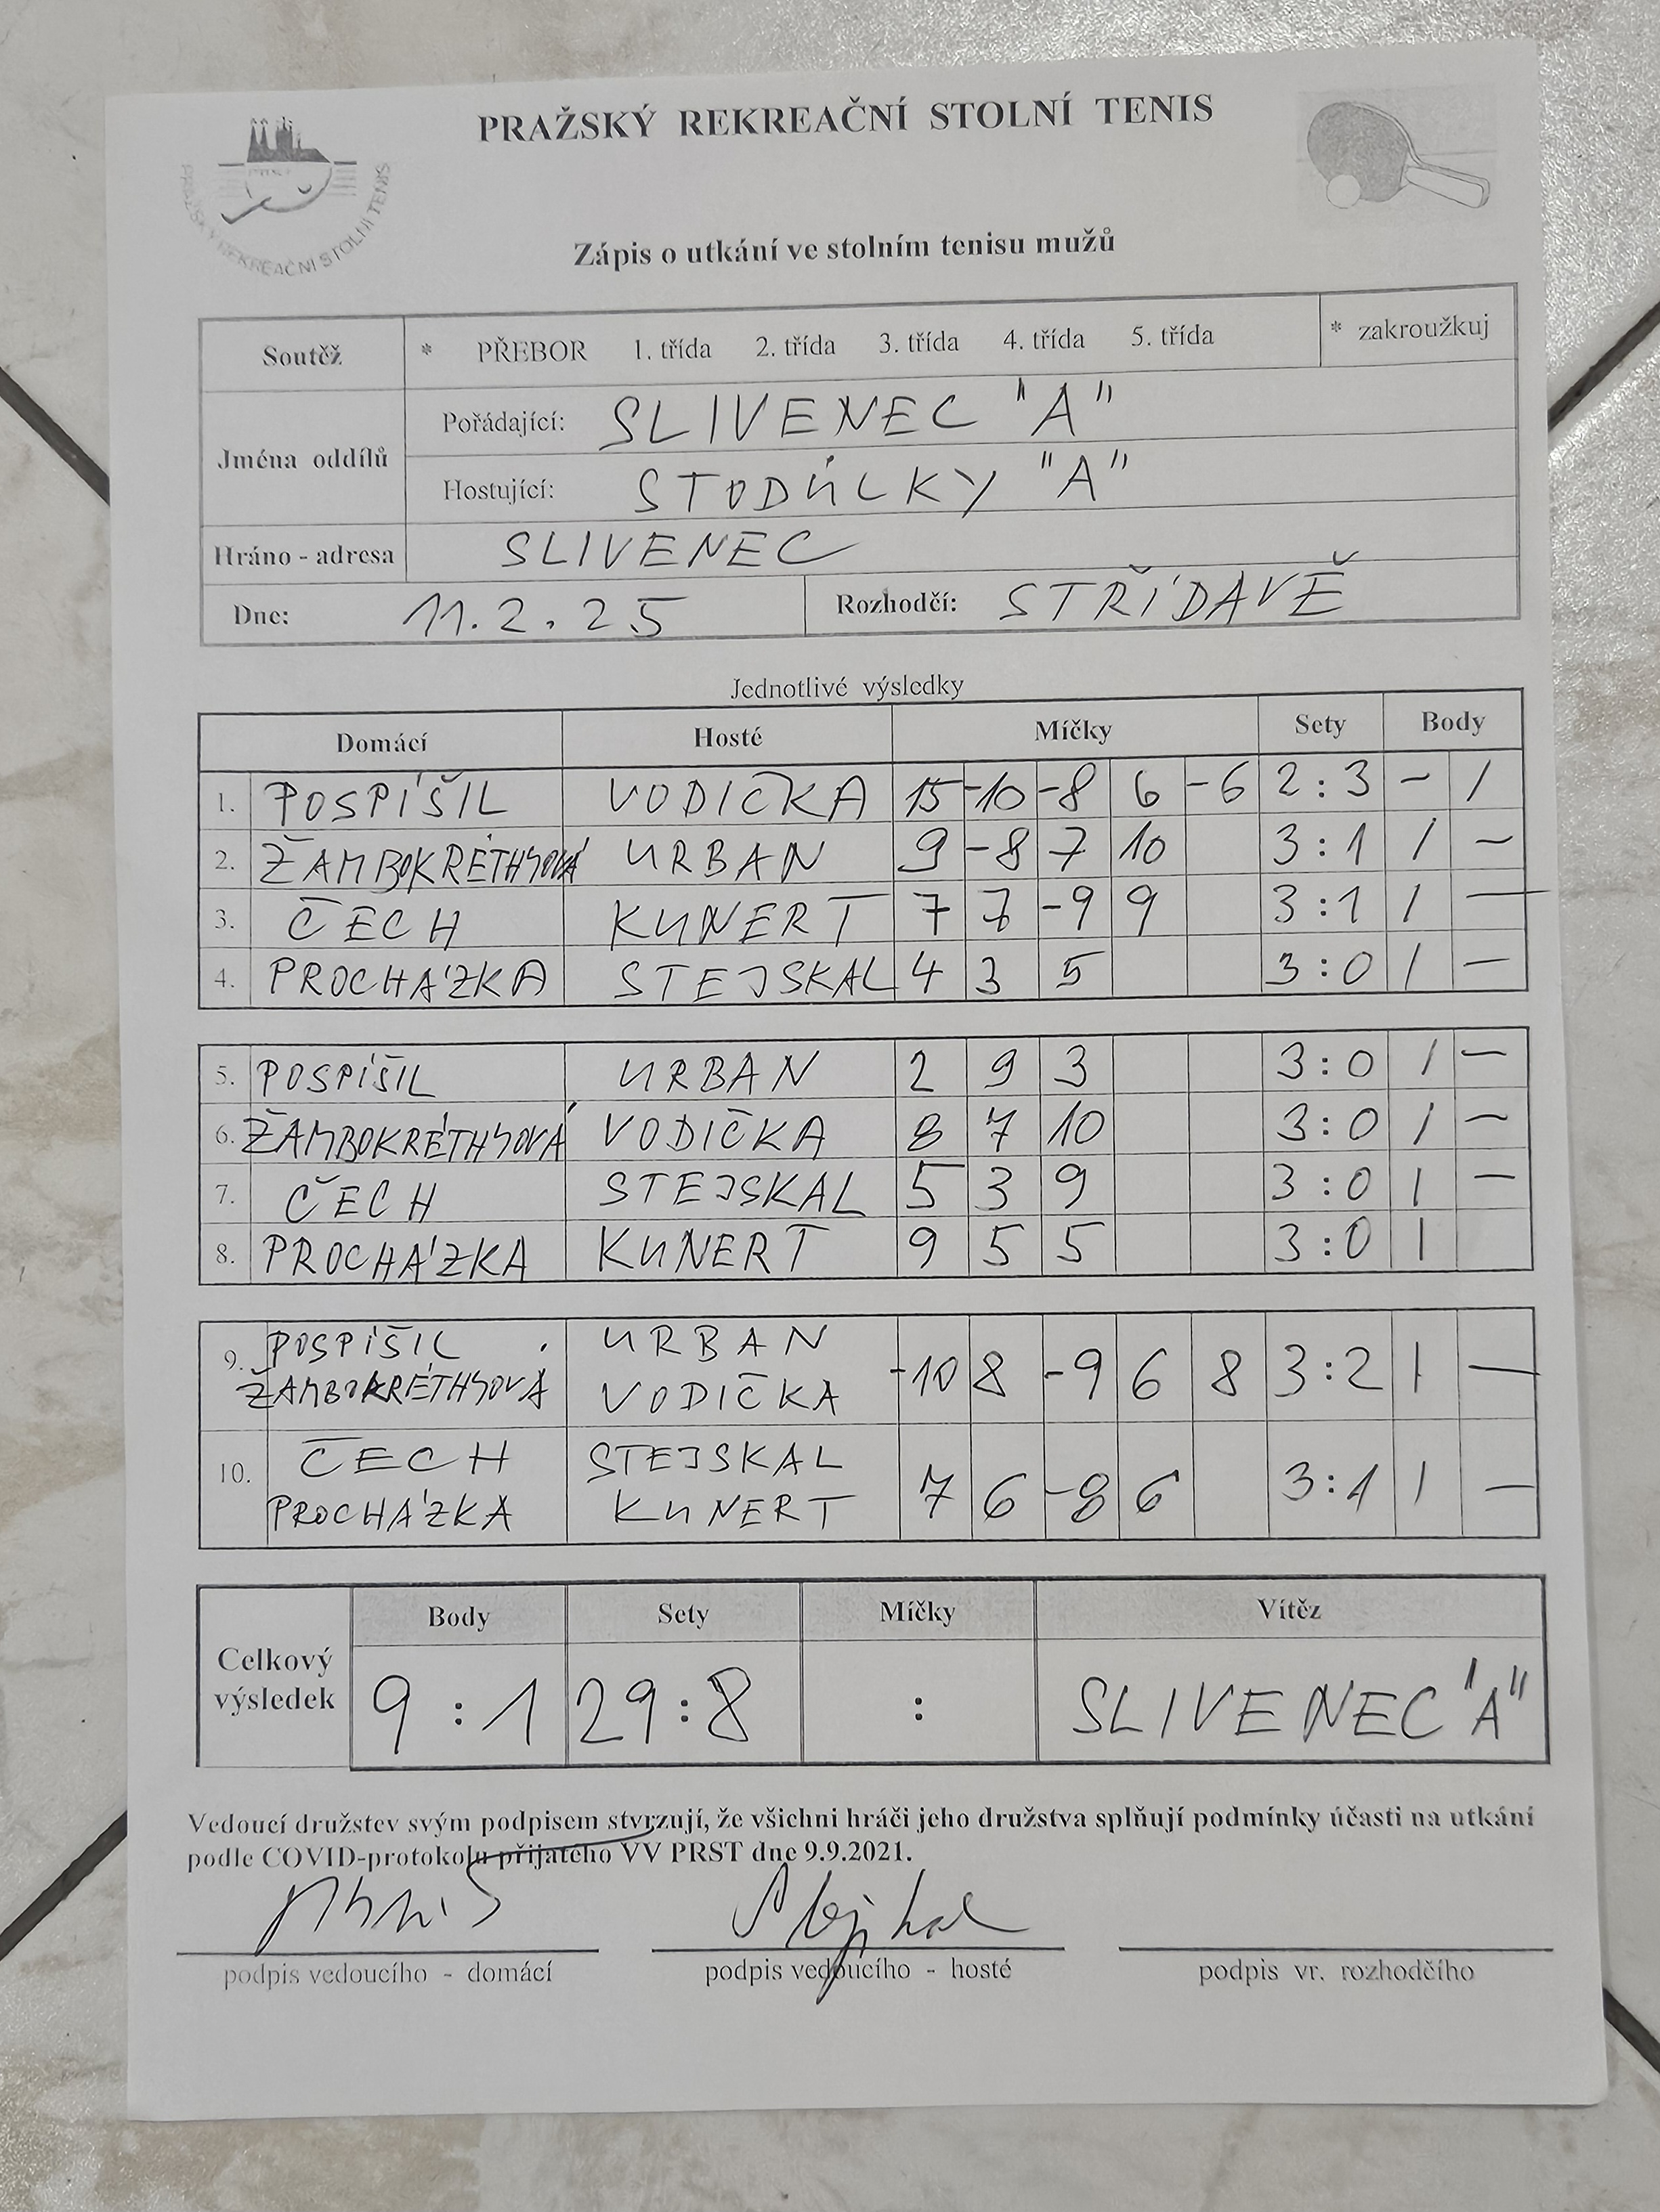 PRAŽSKÝ REKREAČNÍ STOLNÍ TENIS
PRAŽSKÝ REKREAČNÍ STOLNÍ TENIS
Zápis o utkání ve stolním tenisu mužů
Soutěž * PŘEBOR 1. třída 2. třída 3. třída 4. třída 5. třída * zakroužkuj
Jména oddílů
Pořádající: SLIVENEC "A"
Hostující: STODŮLKY "A"
Hráno - adresa SLIVENEC
Dne: 11.2.25 Rozhodčí: STŘÍDAVĚ
Jednotlivé výsledky
Domácí Hosté Míčky Sety Body
1. POSPÍŠIL VODIČKA 15 -10 -8 6 -6 2:3 - 1
2. ŽAMBOKRÉTHYOVÁ URBAN 9 -8 7 10 3:1 1 -
3. ČECH KUNERT 7 7 -9 9 3:1 1 -
4. PROCHÁZKA STEJSKAL 4 3 5 3:0 1 -
5. POSPÍŠIL URBAN 2 9 3 3:0 1 -
6. ŽAMBOKRÉTHYOVÁ VODIČKA 8 7 10 3:0 1 -
7. ČECH STEJSKAL 5 3 9 3:0 1 -
8. PROCHÁZKA KUNERT 9 5 5 3:0 1
9. POSPÍŠIL URBAN
ŽAMBOKRÉTHYOVÁ VODIČKA -10 8 -9 6 8 3:2 1 -
10. ČECH STEJSKAL
PROCHÁZKA KUNERT 7 6 -8 6 3:1 1 -
Body Sety Míčky Vítěz
Celkový výsledek 9:1 29:8 : SLIVENEC "A"
Vedoucí družstev svým podpisem stvrzují, že všichni hráči jeho družstva splňují podmínky účasti na utkání
podle COVID-protokolu přijatého VV PRST dne 9.9.2021.
podpis vedoucího - domácí podpis vedoucího - hosté podpis vr. rozhodčího